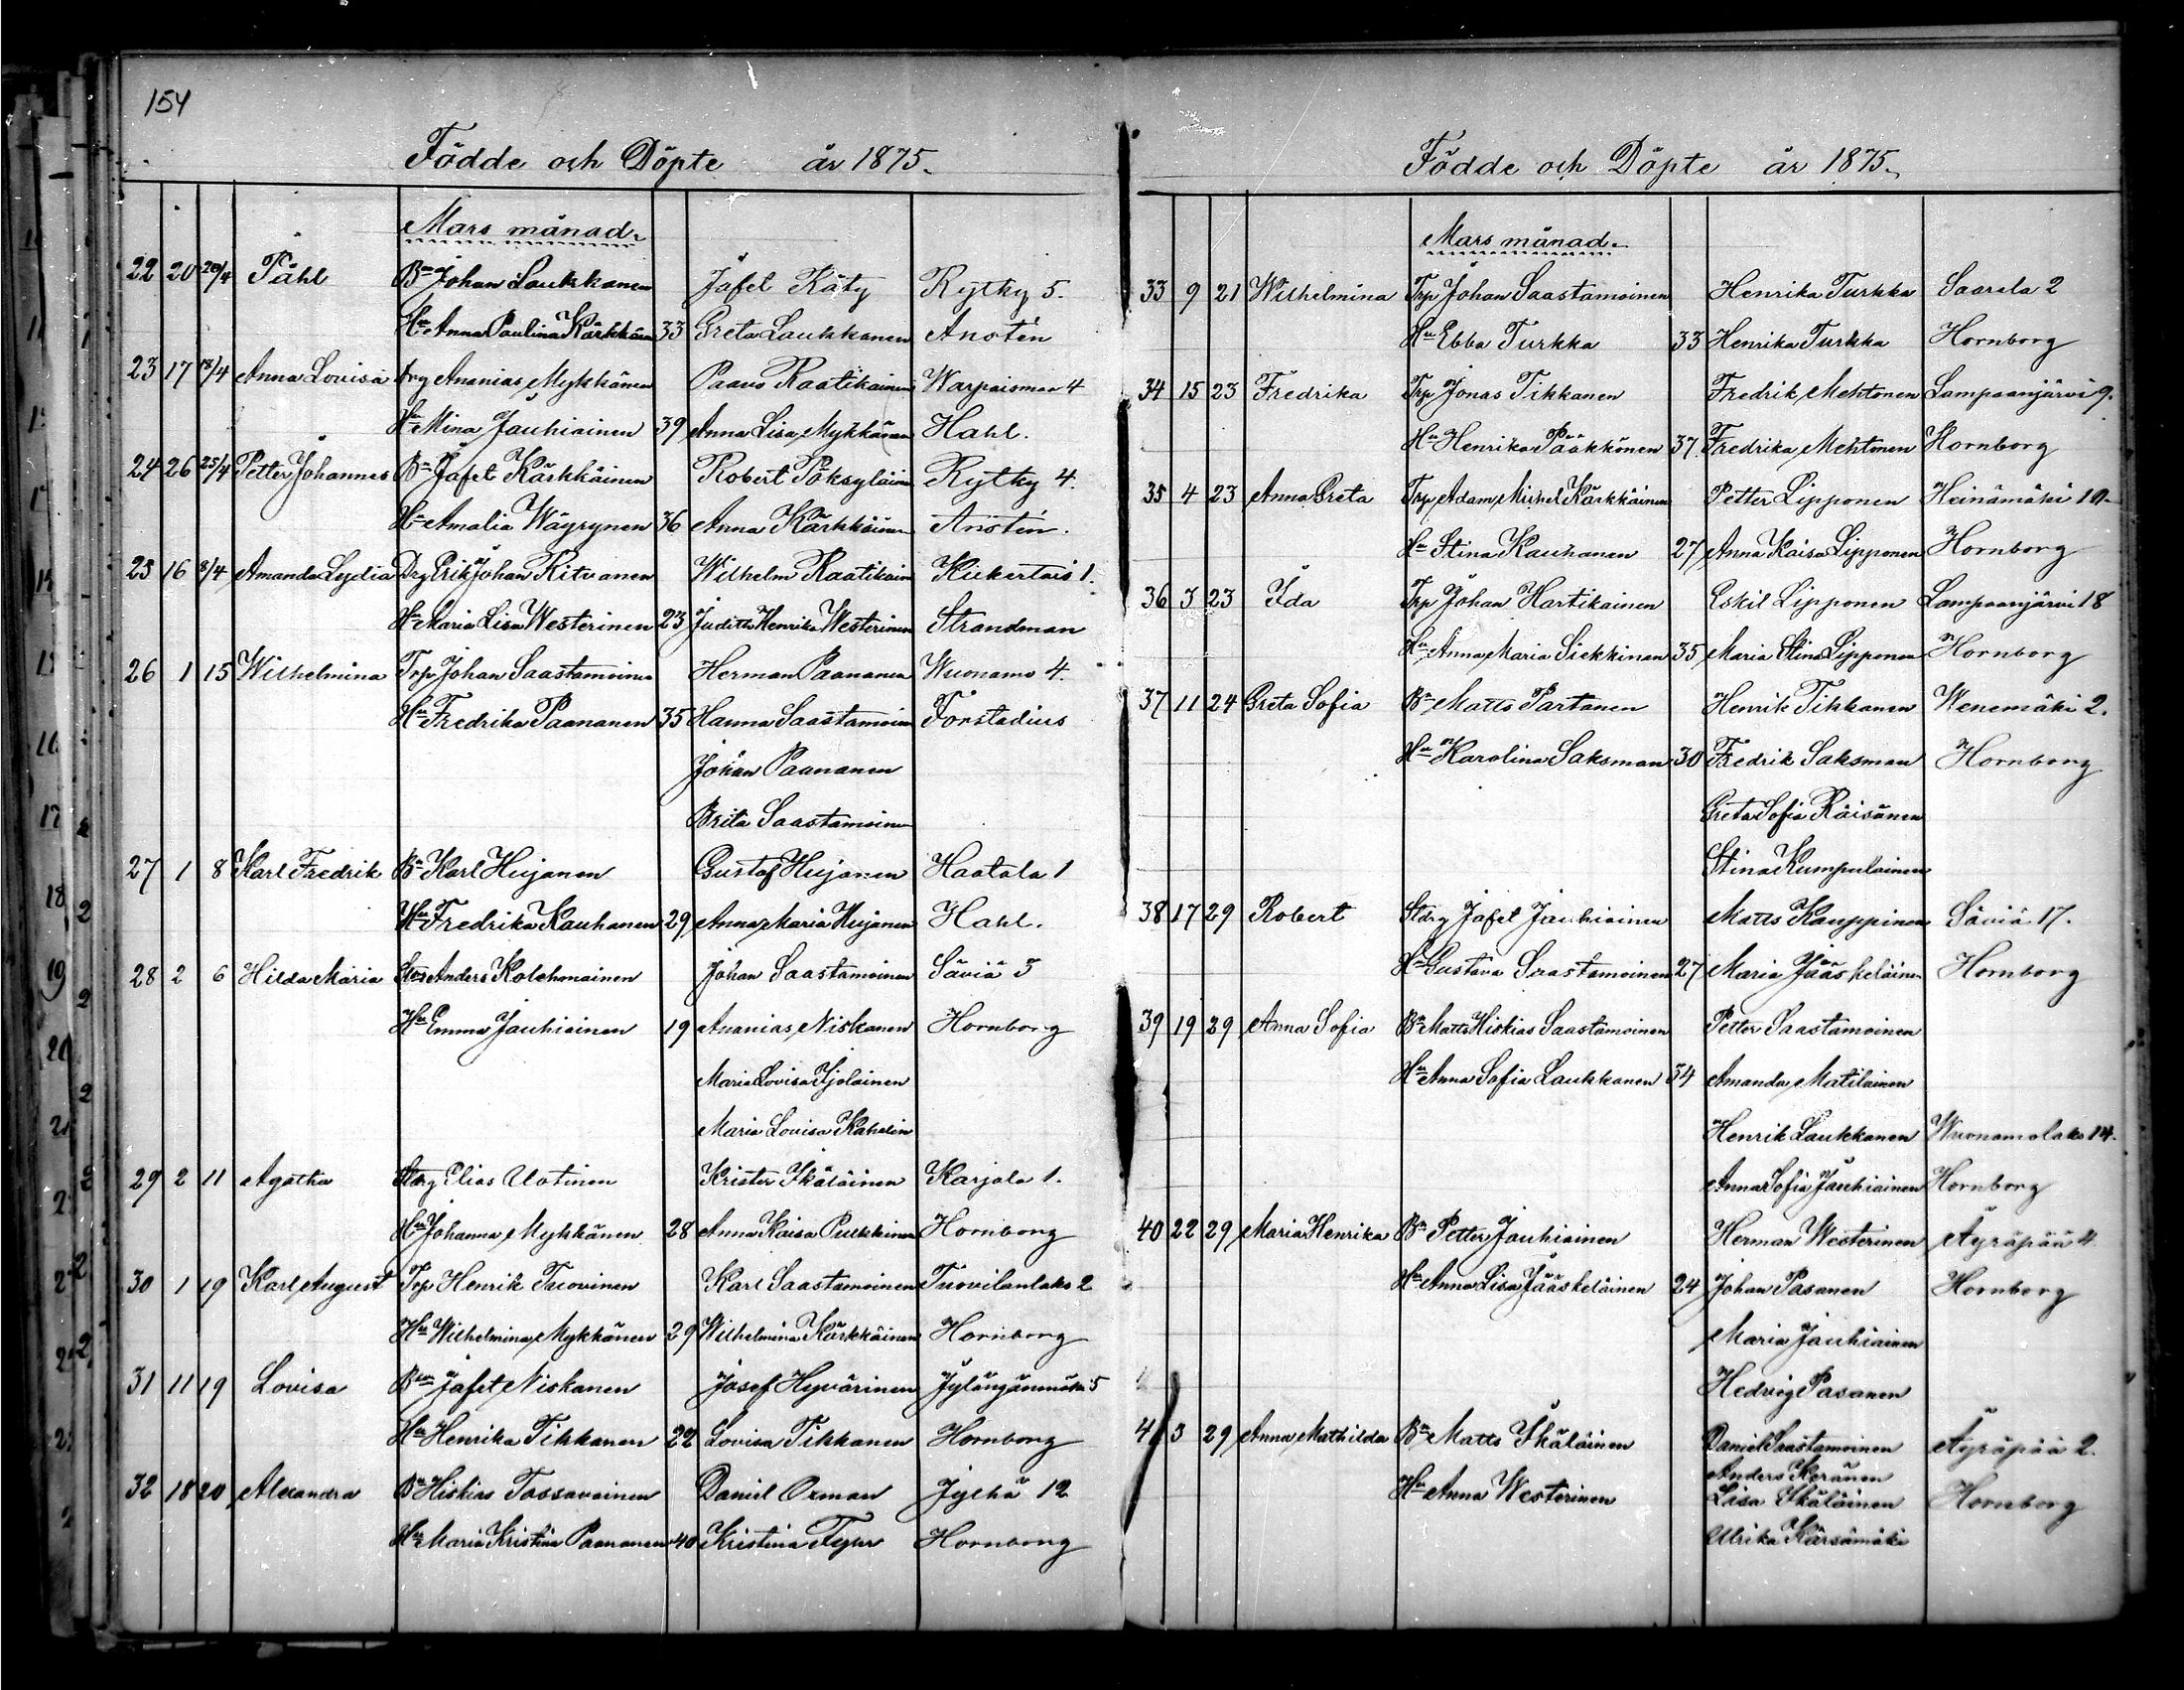 154
Födde och Döpte år 1875.
Mars månad.
22 20 20/4 Påhl Bn Johan Laukkanen Jafet Räty Rytky 5.
Hu Anna Paulina Kärkkäinen 33 Greta Laukkanen Anstén
23 17 18/4 Anna Lovisa Drg Ananias Mykkänen Paavo Raatikainen Warpaismaa 4
Hu Mina Jauhiainen 39 Anna Lisa Mykkänen Hahl.
24 26 25/4 Petter Johannes Bn Jafet Kärkkäinen Robert Pöksyläinen Rytky 4.
Hu Amalia Wäyrynen 36 Anna Kärkkäinen Anstén.
25 16 8/4 Amanda Lydia Drg Erik Johan Ritvanen Wilhelm Raatikainen 1.
Hu Maria Lisa Westerinen 23 Judith Henrika Westerinen Strandman
26 1 15 Wilhelmina Trp Johan Saastamoinen Herman Paananen Wuonamo 4.
Hu Fredrika Paananen 35 Hanna Saastamoinen Forstadius
Johan Paananen
Brita Saastamoinen
27 1 8 Karl Fredrik Bn Karl Hujanen Gustaf Hujanen Haatala 1
Hu Fredrika Kauhanen 29 Anna Maria Hujanen Hahl.
28 2 6 Hilda Maria Anders Kolehmainen Johan Saastamoinen Säviä 3
Hu Emma Jauhiainen 19 Ananias Niskanen Hornborg
Maria Lovisa
Maria Lovisa
29 2 11 Agatha Elias Uotinen Krister Ikäläinen Karjala 1.
Hu Johanna Mykkänen 28 Anna Kaisa Pukkinen Hornborg
30 1 19 Karl August Trp Henrik Tuovinen Karl Saastamoinen Tuovilanlaks 2
Hu Wilhelmina Mykkänen 29 Wilhelmina Kärkkäinen Hornborg
31 11 19 Lovisa Bn Jafet Niskanen Josef Hyvärinen 5
Hu Henrika Tikkanen 22 Lovisa Tikkanen Hornborg
32 18 20 Alexandra Bn Hiskias Tossavainen Daniel Oxman Jylhä 12
Hu Maria Kristina Paananen 40 Kristina Hornborg
Födde och Döpte år 1875.
Mars månad.
33 9 21 Wilhelmina Trp Johan Saastamoinen Henrika Turkka Saarela 2
Hu Ebba Turkka 33 Henrika Turkka Hornborg
34 15 23 Fredrika Trp Jonas Tikkanen Fredrik Mehtonen Lampaanjärvi 9.
Hu Henrika Pääkkönen 37. Fredrika Mehtonen Hornborg
35 4 23 Anna Greta Trp Adam Michel Kärkkäinen Petter Lipponen Heinämäki 10
Hu Stina Kauhanen 27 Anna Kaisa Lipponen Hornborg
36 3 23 Ida Trp Johan Hartikainen Eskil Lipponen Lampaanjärvi 18
Hu Anna Maria Siekkinen 35 Maria Stina Lipponen Hornborg
37 11 24 Greta Sofia Bn Matts Partanen Henrik Tikkanen Wenemäki 2.
Hu Karolina Saksman 30 Fredrik Saksman Hornborg
Greta Sofia Räisänen
Stina Kumpulainen
38 17 29 Robert Stdrg Jafet Jauhiainen Matts Kauppinen Säviä 17.
Hu Gustava Saastamoinen 27 Maria Jääskeläinen Hornborg
39 19 29 Anna Sofia Bn Matts Hiskias Saastamoinen Petter Saastamoinen
Hu Anna Sofia Laukkanen 34 Amanda Matilainen
Henrik Laukkanen Wuonamolaks 14.
Anna Sofia Jauhiainen Hornborg
40 22 29 Maria Henrika Bn Petter Jauhiainen Herman Westerinen Äyräpää 4
Hu Anna Lisa Jääskeläinen 24 Johan Pasanen Hornborg
Maria Jauhiainen
Hedvig Pasanen
41 3 29 Anna Mathilda Bn Matts Ikäläinen Daniel Saastamoinen Äyräpää 2.
Anders Keränen
Hu Anna Westerinen Lisa Ikäläinen Hornborg
Ulrika Kärsämäki